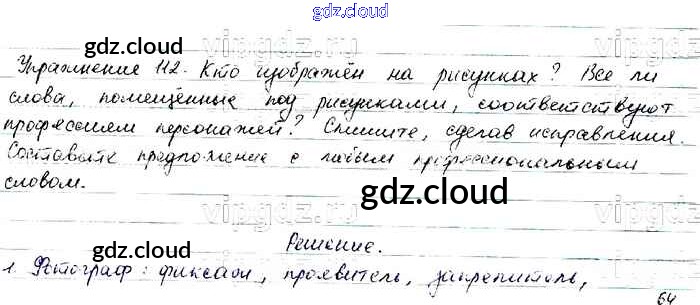 gdz.cloud
vipgdz.ru
gdz.cloud gdz.cloud
Упражнение 112. Кто изображён на рисунках? Все ли
слова, помещённые под рисунками, соответствуют
профессиям персонажей? Спишите, сделав исправления.
Составьте предложение с любым профессиональным
словом.
vipgdz.ru
gdz.cloud
gdz.cloud
Решение.
1. Фотограф: фиксаж, проявитель, закрепитель,
64